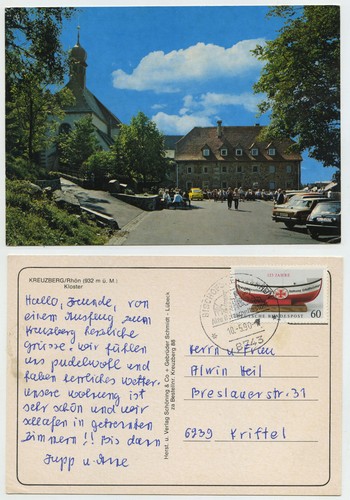 KREUZBERG/Rhön (932 m ü. M.)
Kloster
Hallo, Freunde, von
einem Ausflug zum
Kreuzberg herzliche
Grüsse. Wir fühlen
uns pudelwohl und
haben herrliches Wetter.
Unsere Wohnung ist
sehr schön und wir
schlafen in getrennten
Zimmern!! Bis dann
Jupp u.
Herst. u. Verlag Schöning & Co + Gebrüder Schmidt · Lübeck
zu Bestellnr. Kreuzberg 88
10.-5.90
8743
125 JAHRE
DEUTSCHE BUNDESPOST
60
Herrn u Frau
Alwin Heil
Breslauerstr. 31
6239 Kriftel